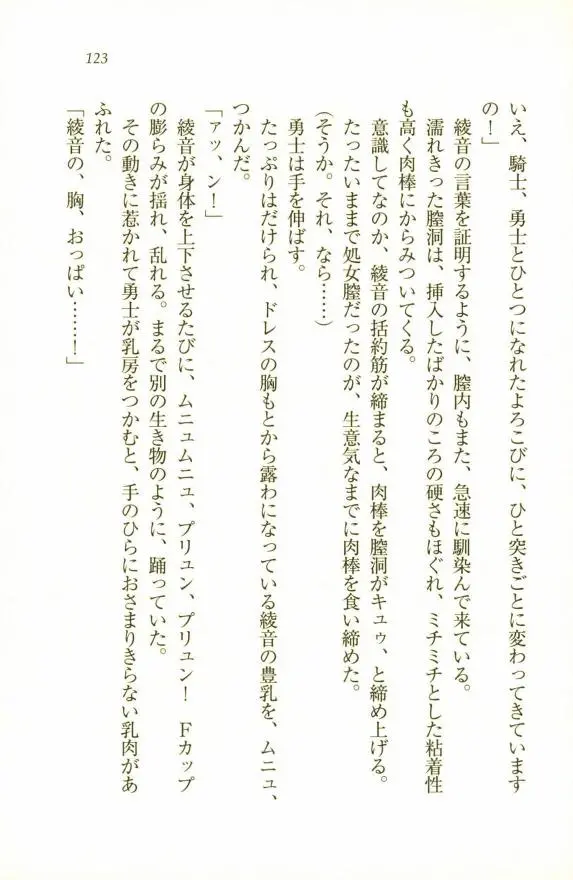 123
いえ、騎士、勇士とひとつになれたよろこびに、ひと突きごとに変わってきています
の！」
綾音の言葉を証明するように、膣内もまた、急速に馴染んで来ている。
濡れきった膣洞は、挿入したばかりのころの硬さもほぐれ、ミチミチとした粘着性
も高く肉棒にからみついてくる。
意識してなのか、綾音の括約筋が締まると、肉棒を膣洞がキュゥ、と締め上げる。
たったいままで処女膣だったのが、生意気なまでに肉棒を食い締めた。
（そうか。それ、なら……）
勇士は手を伸ばす。
たっぷりはだけられ、ドレスの胸もとから露わになっている綾音の豊乳を、ムニュ、
つかんだ。
「アッ、ン！」
綾音が身体を上下させるたびに、ムニュムニュ、プリュン、プリュン！　Ｆカップ
の膨らみが揺れ、乱れる。まるで別の生き物のように、踊っていた。
その動きに惹かれて勇士が乳房をつかむと、手のひらにおさまりきらない乳肉があ
ふれた。
「綾音の、胸、おっぱい……！」